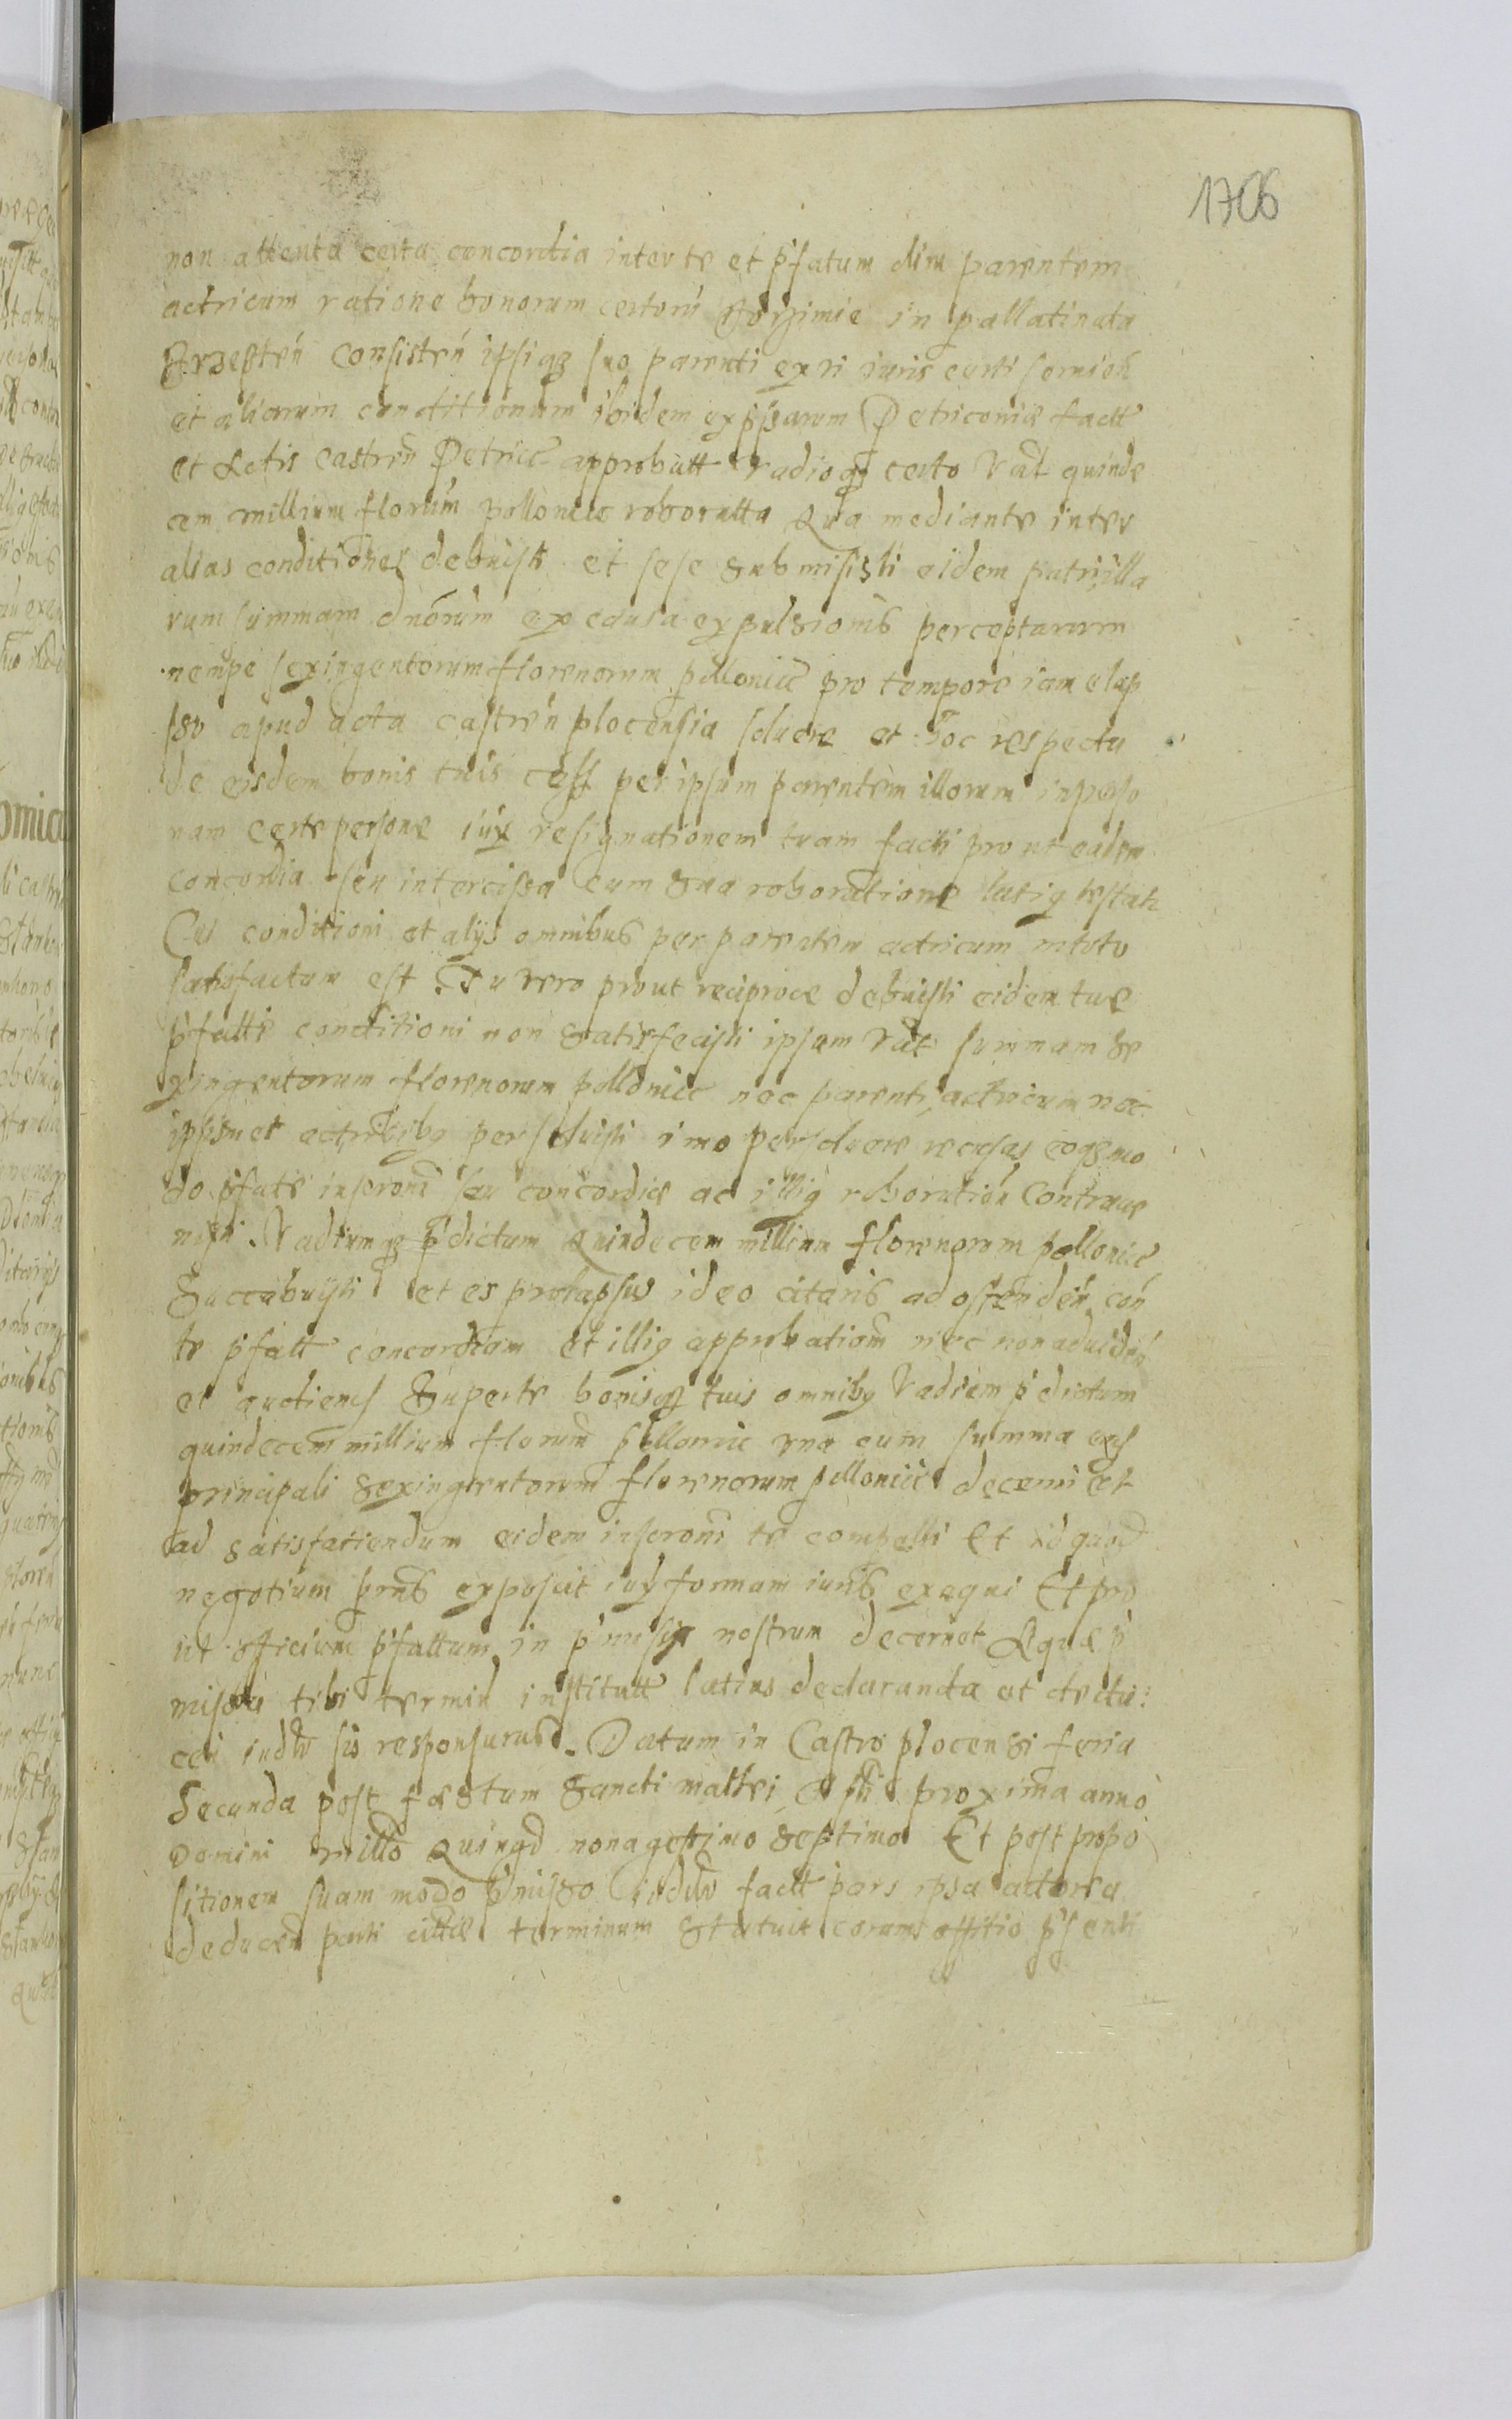 1706
non attenta certa concordia inter te et p̄fatum olim parentem
actricum ratione bonorum certorū in pallatinatu
consisten̄ ipsiqꝫ suo parenti ex vi iuris certi
et aliarum conditionum ibidem exp̄ssarum Petricoviæ factt
et Actis castren̄ Petricc approbatt vadioqꝫ certo vat quinde
cem millium florum̄ pollonicc roboratta Qua mediante inter
alias conditiones debuisti et sese submisisti eidem patri illa
rum summam dnorum̄ ex causa expulsionis perceptarum
nempe sexingentorum florenorum pollonicc pro tempore iam elap
so apud acta castren̄ plocensia soluere et hoc respectu
de eisdem bonis tuis cess per ipsum parentem illorum in perso
nam certe persone iux resignationem tuam facti prout eadem
concordia seu intercissa cum sua roboratione latiꝯ testatr
Cui conditioni et alijs omnibus per parentem actricum in toto
satisfactum est Tu vero prout reciproce debuisti eidem tue
p̄fatte conditioni non satisfecisti ipsam vat summam se
xingentorum florenorum pollonicc nec parenti actricum nec
ipsismet actricibꝯ persoluisti imo persoluere recusas eoqꝫ mo
do p̄fate inscroni seu concordiæ ac illiꝯ roboration̄ contraue
nisti. Vadiumqꝫ p̄dictum Quindecem millium florenorum pollonicc
Succubuisti et es prolapsus ideo citaris ad ostenden̄ con̄
te p̄fatt concordiam et illiꝯ approbationem nec non ad viden̄
et audiend̄ super te bonisqꝫ tuis omnibꝯ Vadium p̄dictum
quindecem millium florum̄ pollonicc una cum summa
principali sexingentorum florenorum pollonicc decerni et
ad satisfaciendum eidem inscroni te compelli Et id quod
negotium prns̄ exposcit iux formam iuris exequi Et pro
ut officium p̄fattum in p̄missis nostrum decernet Aquæ p̄
missa tibi termin̄ institutt latius declaranda et dedu
cen̄ iudtr̄ sis responsurus. Datum in Castro plocensi feria
Secunda post festum Sancti mathei Apli proxima anno
Domini millo Quingo nonagesimo septimo Et post propo
sitionem suam modo p̄misso iudtr factt pars ipsa actorea
deducen̄ parti cittæ terminum statuit coram offitio p̄senti